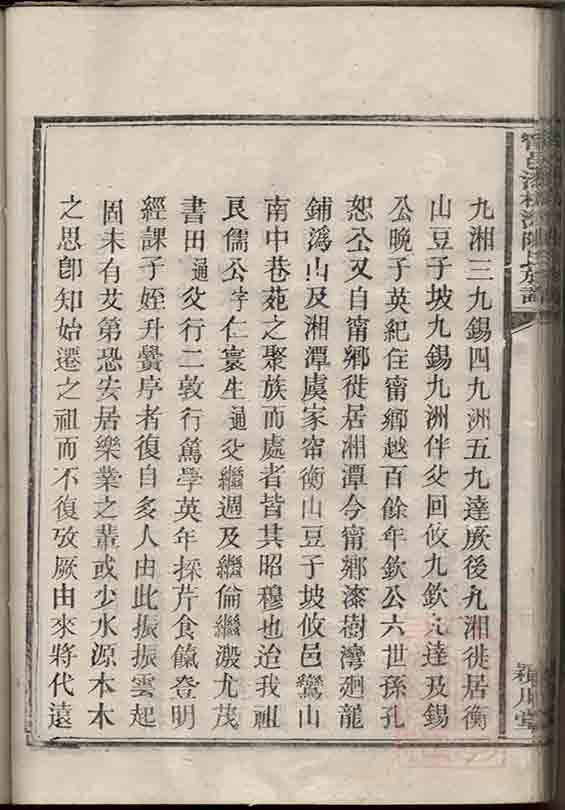 甯邑漆樹灣陳氏族譜
潁川堂
九湘三九錫四九洲五九達厥後九湘徙居衡
山豆子坡九錫九洲伴父回攸九欽九達及錫
公晚子英紀住甯鄉越百餘年欽公六世孫孔
恕公又自甯鄉徙居湘潭今甯鄉漆樹灣廻龍
鋪溈山及湘潭虞家帘衡山豆子坡攸邑鸞山
南中巷苑之聚族而處者皆其昭穆也迨我祖
艮儒公字仁寰生逈父繼週及繼倫繼激尤茂
書田逈父行二敦行篤學英年採芹食餼登明
經課子姪升黌序者復自多人由此振振雲起
固未有艾第恐安居樂業之輩或少水源本木
之思卽知始遷之祖而不復攷厥由來將代遠